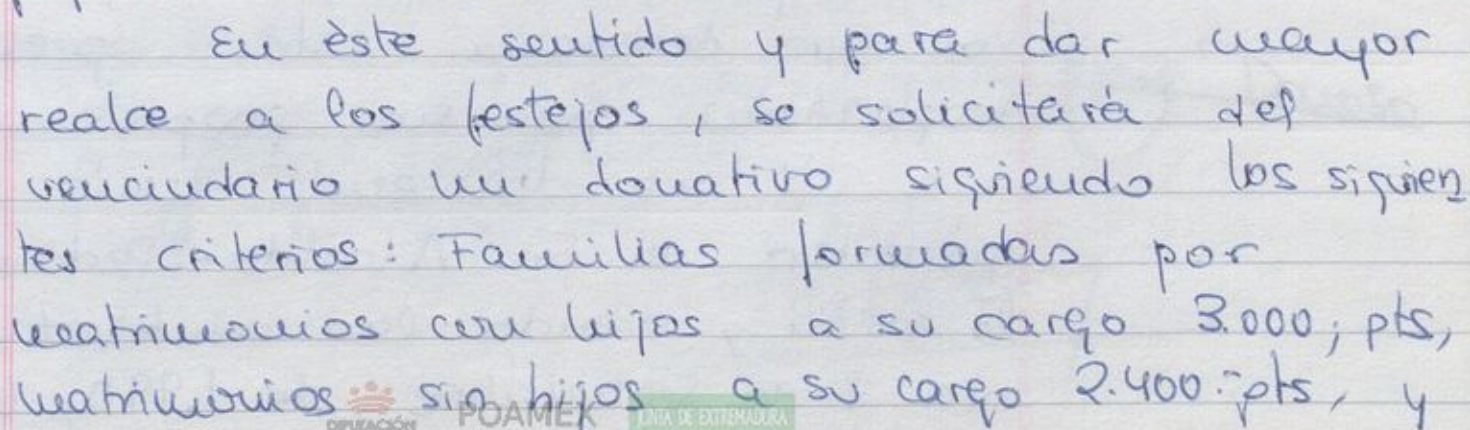 En èste sentido y para dar mayor
realce a los festejos, se solicitará del
venciudario un donativo siguiendo los siguien
tes criterios: Familias formadas por
matrimonios con hijos a su cargo 3.000,- pts,
matrimonios sin hijos a su cargo 2.400.- pts, y
DIPUTACIÓN POAMEX JUNTA DE EXTREMADURA